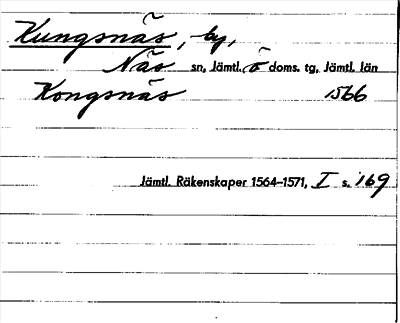 Kungsnäs, by,
Näs sn, Jämtl. ö doms. tg, Jämtl. län
Kongsnäs 1566
Jämtl. Räkenskaper 1564–1571, I s. 169